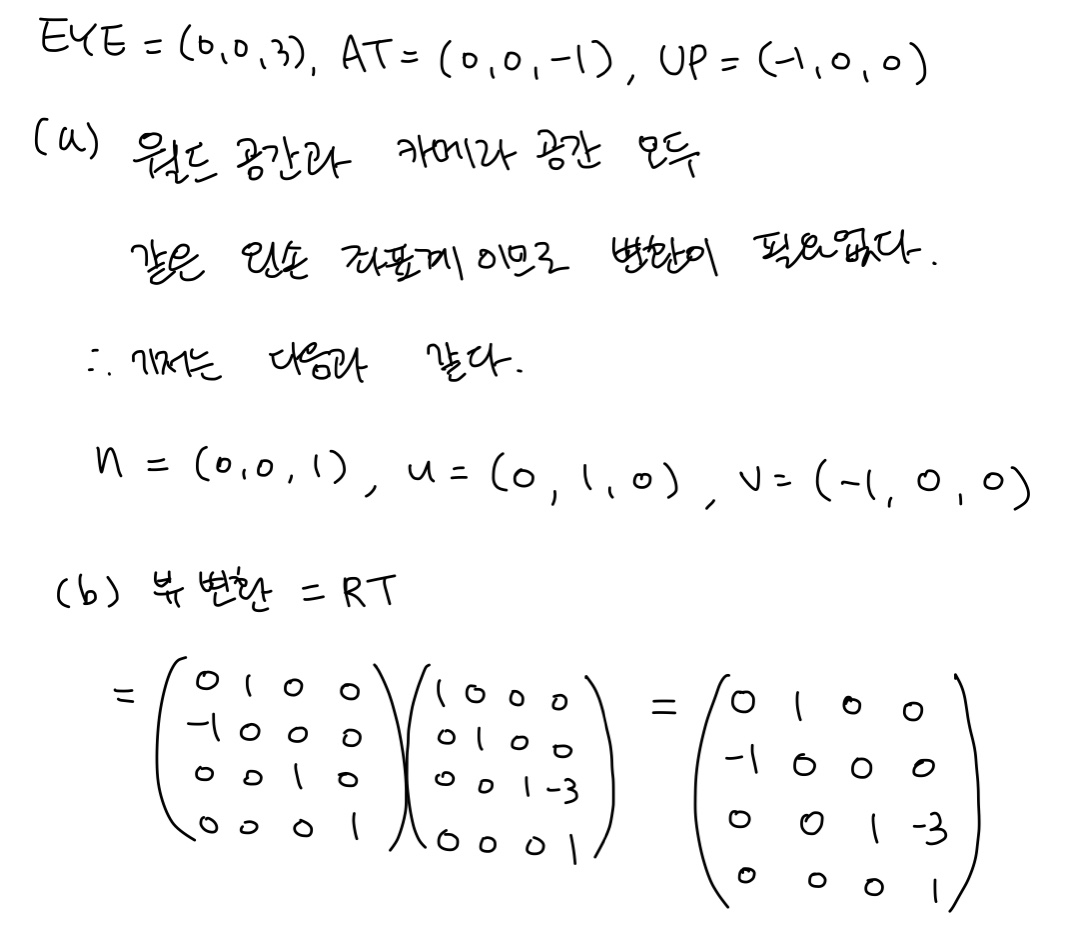 EYE = (0,0,3), AT = (0,0,-1), UP = (-1,0,0)
(a) 월드 공간과 카메라 공간 모두
같은 왼손 좌표계이므로 변환이 필요없다.
∴ 기저는 다음과 같다.
n = (0,0,1), u = (0,1,0), v = (-1,0,0)
(b) 뷰 변환 = RT
= (0 1 0 0 / -1 0 0 0 / 0 0 1 0 / 0 0 0 1) (1 0 0 0 / 0 1 0 0 / 0 0 1 -3 / 0 0 0 1) = (0 1 0 0 / -1 0 0 0 / 0 0 1 -3 / 0 0 0 1)